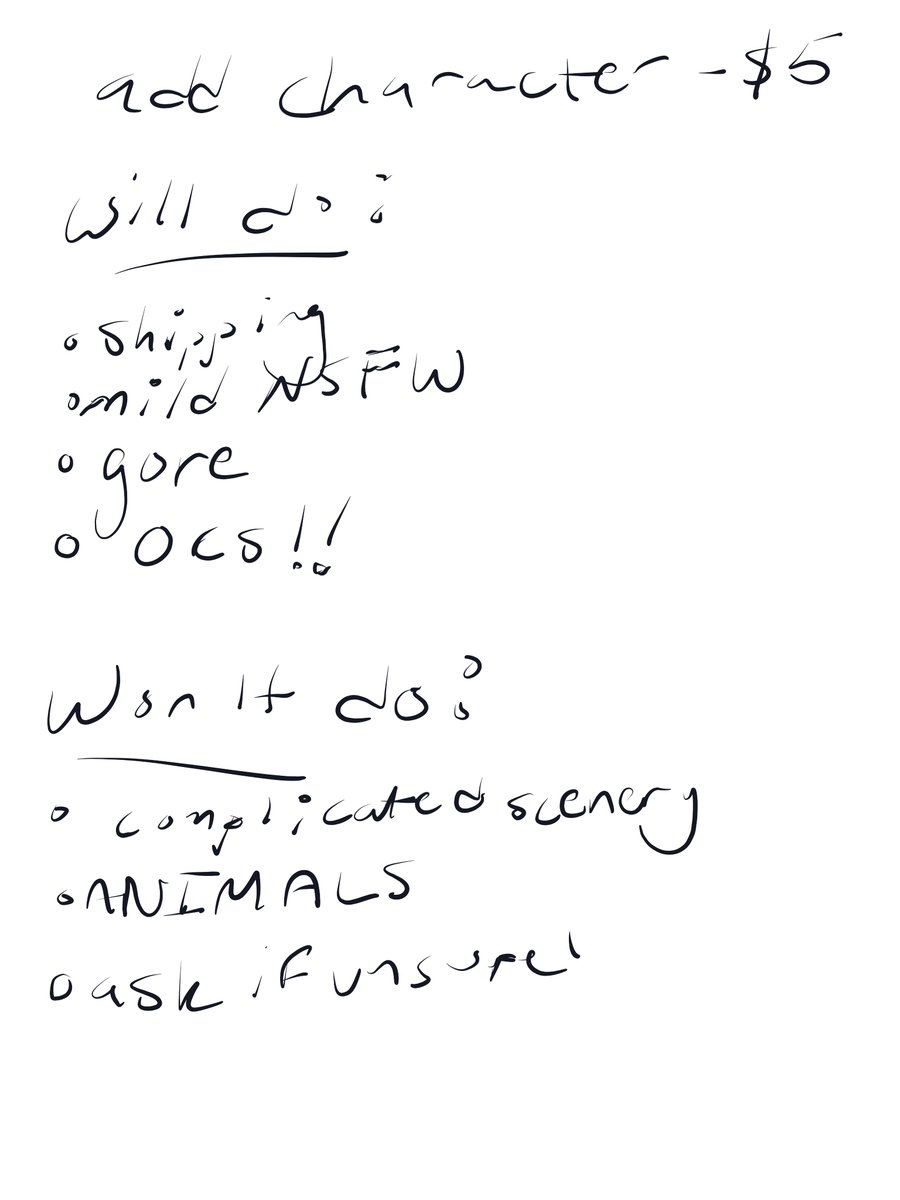 add character - $5
will do:
• shipping
• mild NSFW
• gore
• OCS!!
Won't do:
• complicated scenery
• ANIMALS
• ask if unsure!